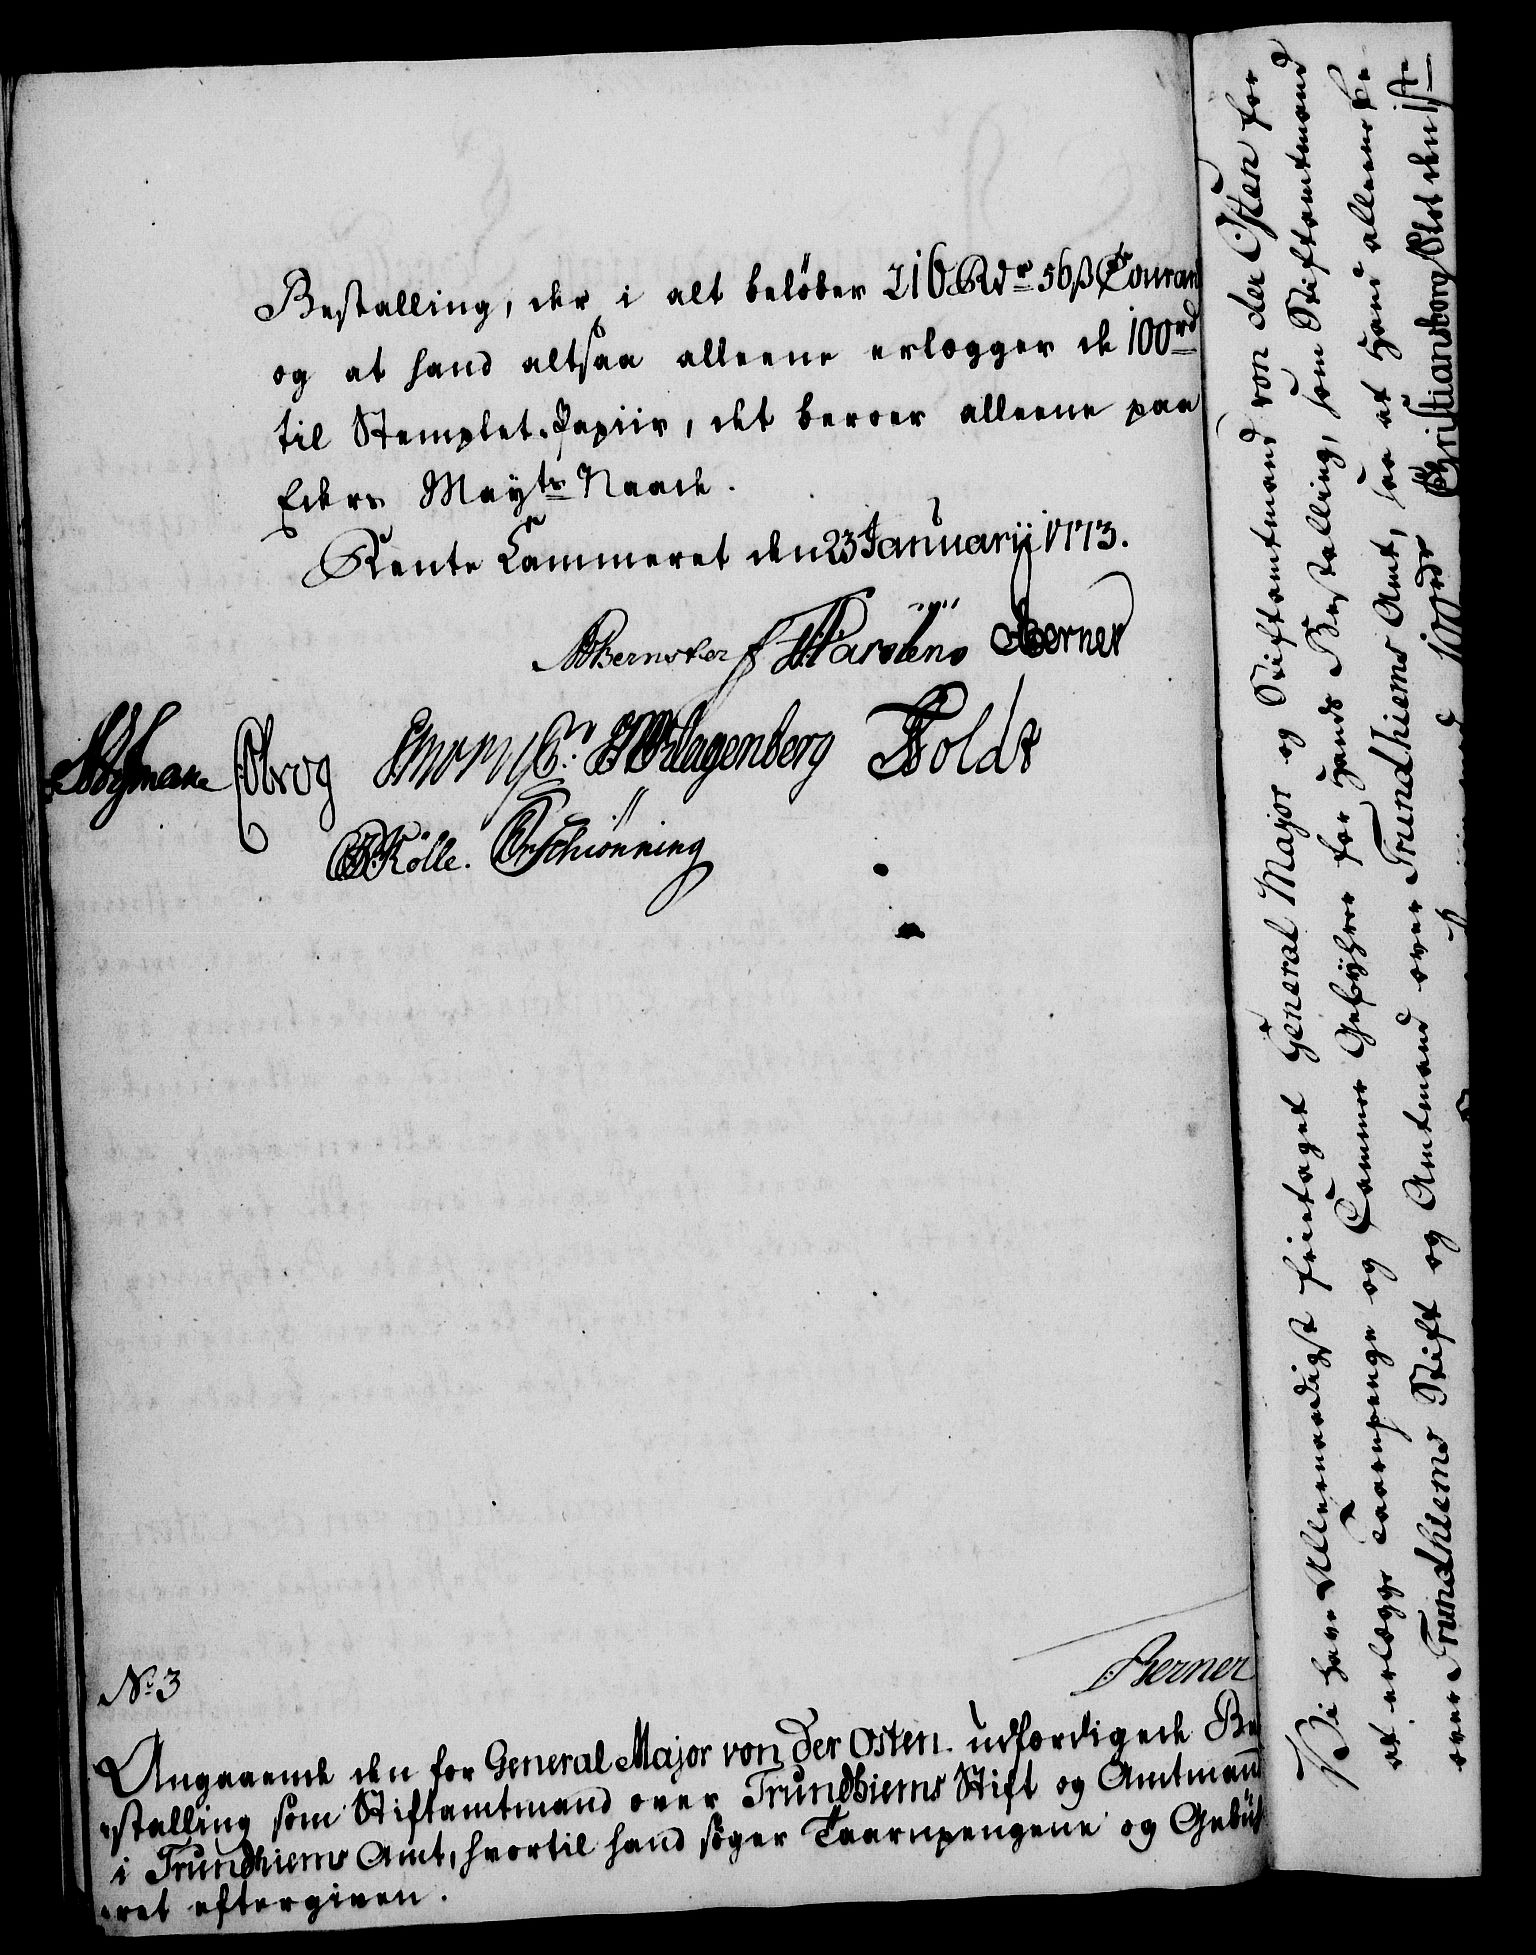 Bestalling, der i alt beløber 216 Rdr 56 ß Courant
og at hand altsaa alleene erlægger de 100 rd
til Stemplet-Papiir, det beroer alleene paa
Eders Mayts Naade.
Rente Cammeret den 23 Januarii 1773.
Berner
Holdt
Kölle. Schiönning
No 3
Berner
Angaaende den for General Major von der Osten udfærdigede Be
stalling som Stiftamtmand over Trundhiems Stift og Amtmand
i Trundhiems Amt, hvortil hand søger Taarnpengene og Gebüh
ret eftergiven.
Vi have Allernaadigst fritaget General Major og Stiftamtmand von der Osten for
at erlægge Taarnpenge og Cammer Gebyhrer for Hands Bestalling, som Stiftamtmand
over Trundhiems Stift og Amtmand over Trundhiems Amt, saa at Hand alleene be
100 rdr Christiansborg Slot den 1ste